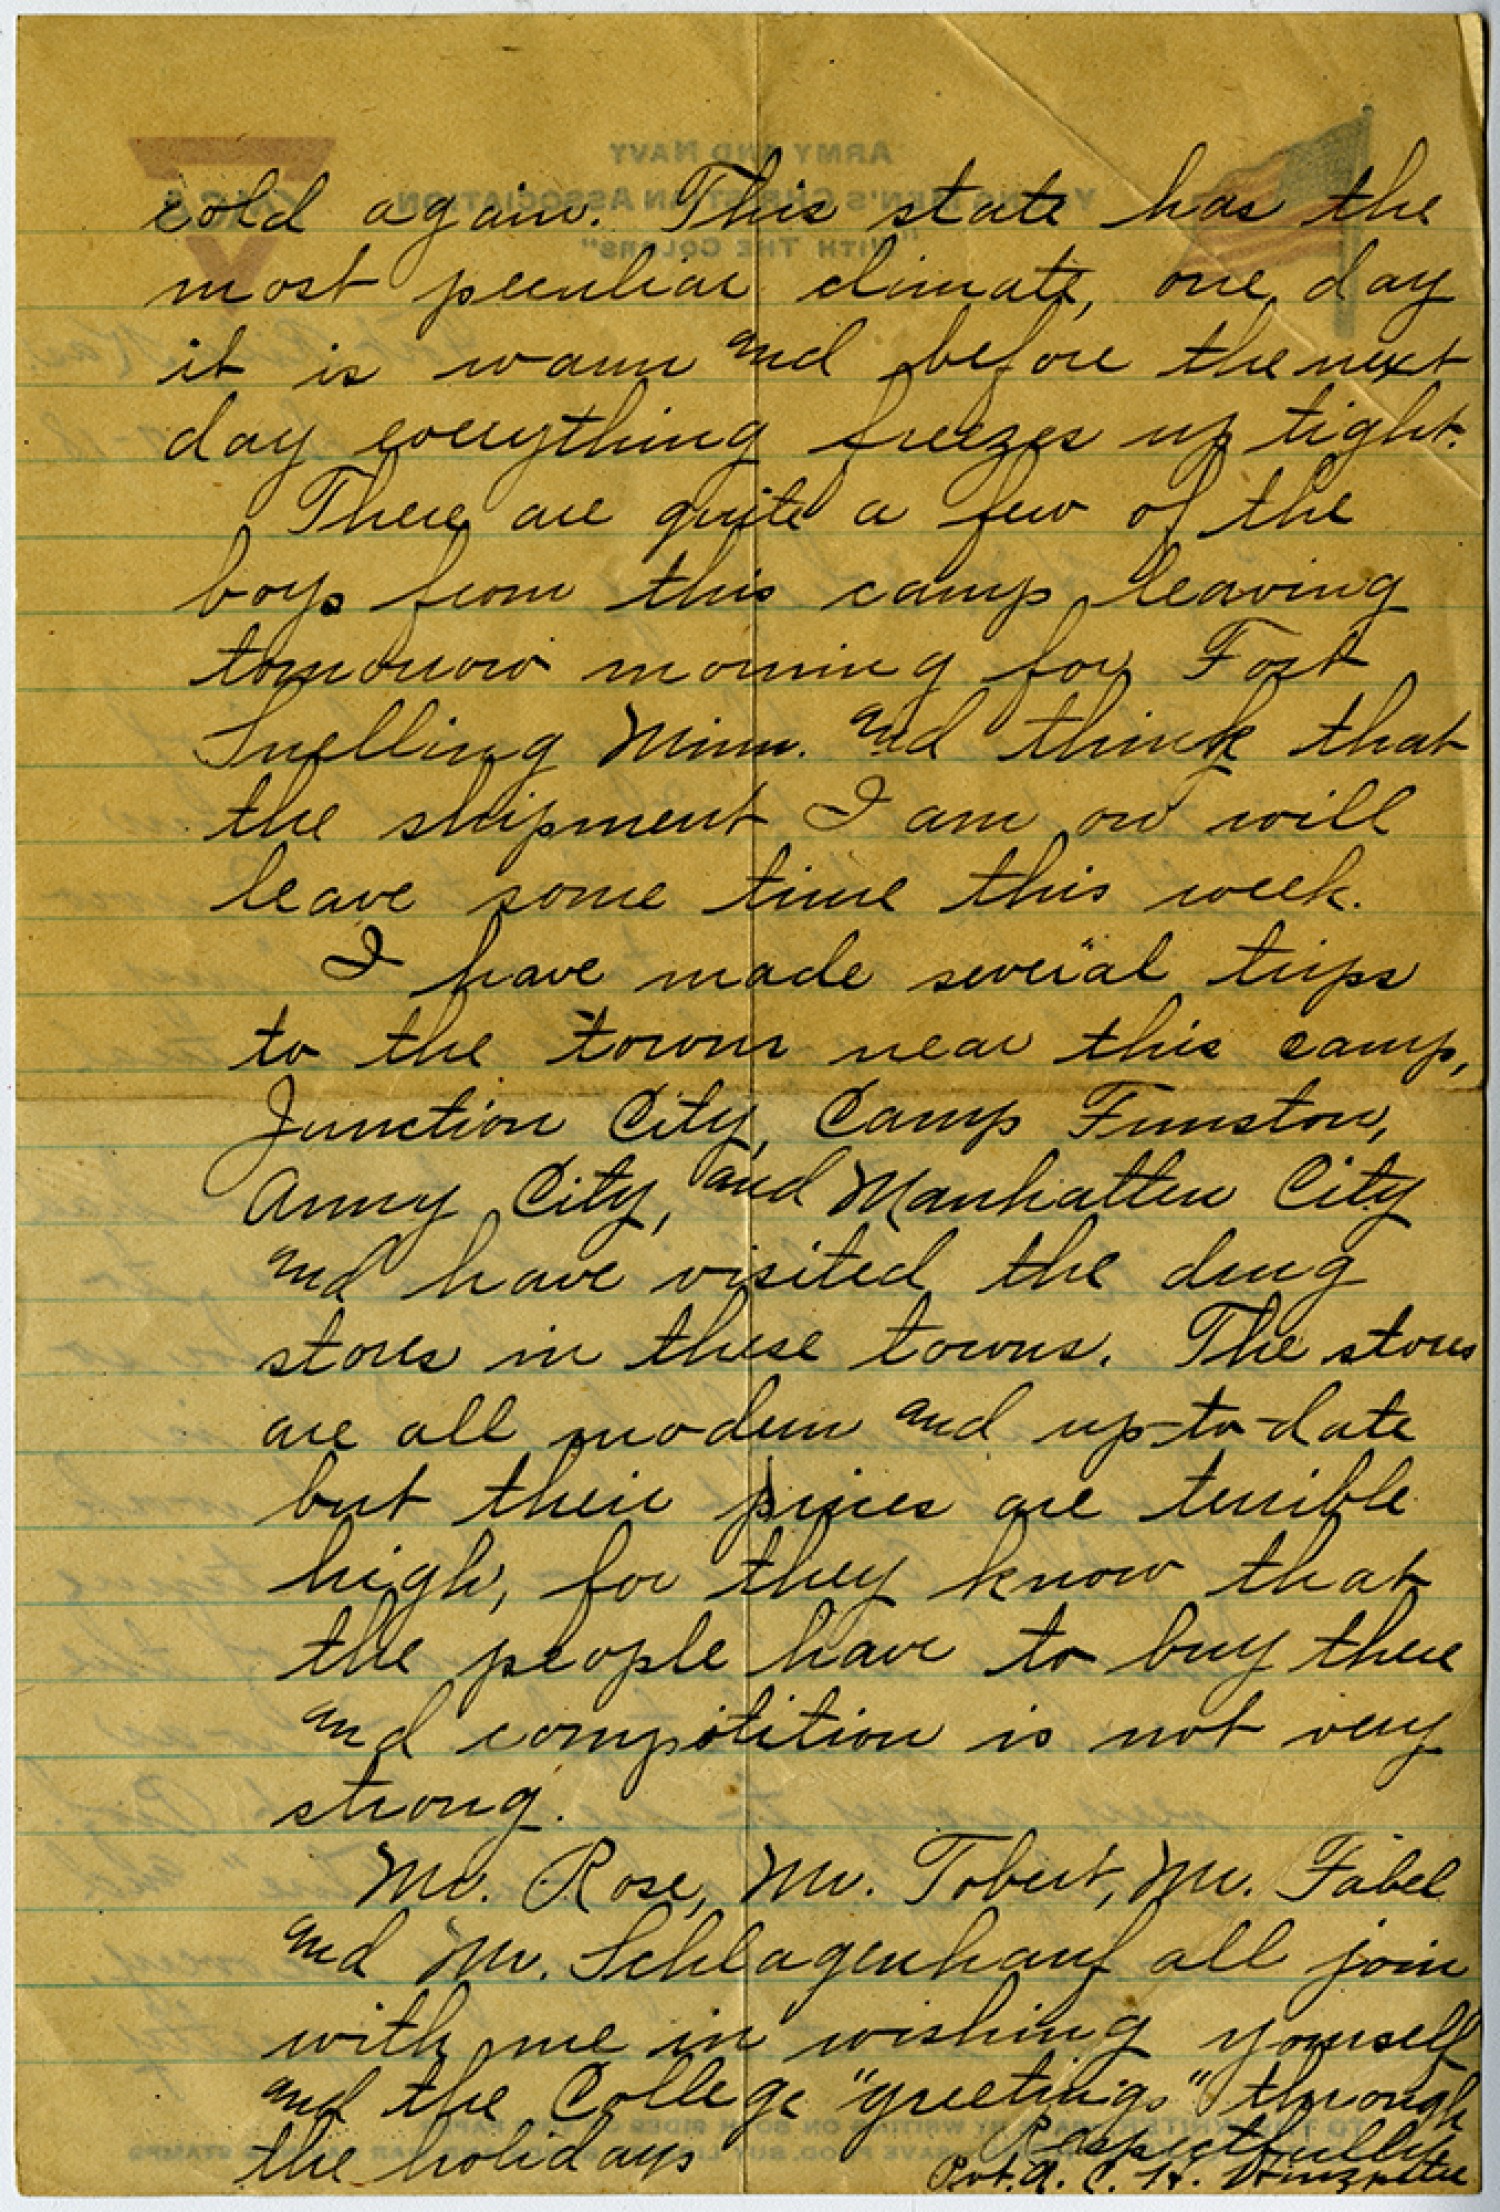 cold again. This state has the
most peculiar climate, one day
it is warm and before the next
day everything freezes up tight.
There are quite a few of the
boys from this camp leaving
tomorrow morning for Fort
Snelling Minn. and think that
the shipment I am on will
leave some time this week.
I have made several trips
to the towns near this camp,
Junction City, Camp Funston,
Army City, and Manhatten City
and have visited the drug
stores in these towns. The stores
are all modern and up-to-date
but their prices are terrible
high, for they know that
the people have to buy there
and compitition is not very
strong.
Mr. Rose, Mr. Tobert, Mr. Fabel
and Mr. Schlagenhauf all join
with me in wishing yourself
and the College "greetings" through
the holidays
Respectfully
Pvt. A. C. H.
ARMY AND NAVY
YOUNG MEN'S CHRISTIAN ASSOCIATION
"WITH THE COLORS"
YMCA